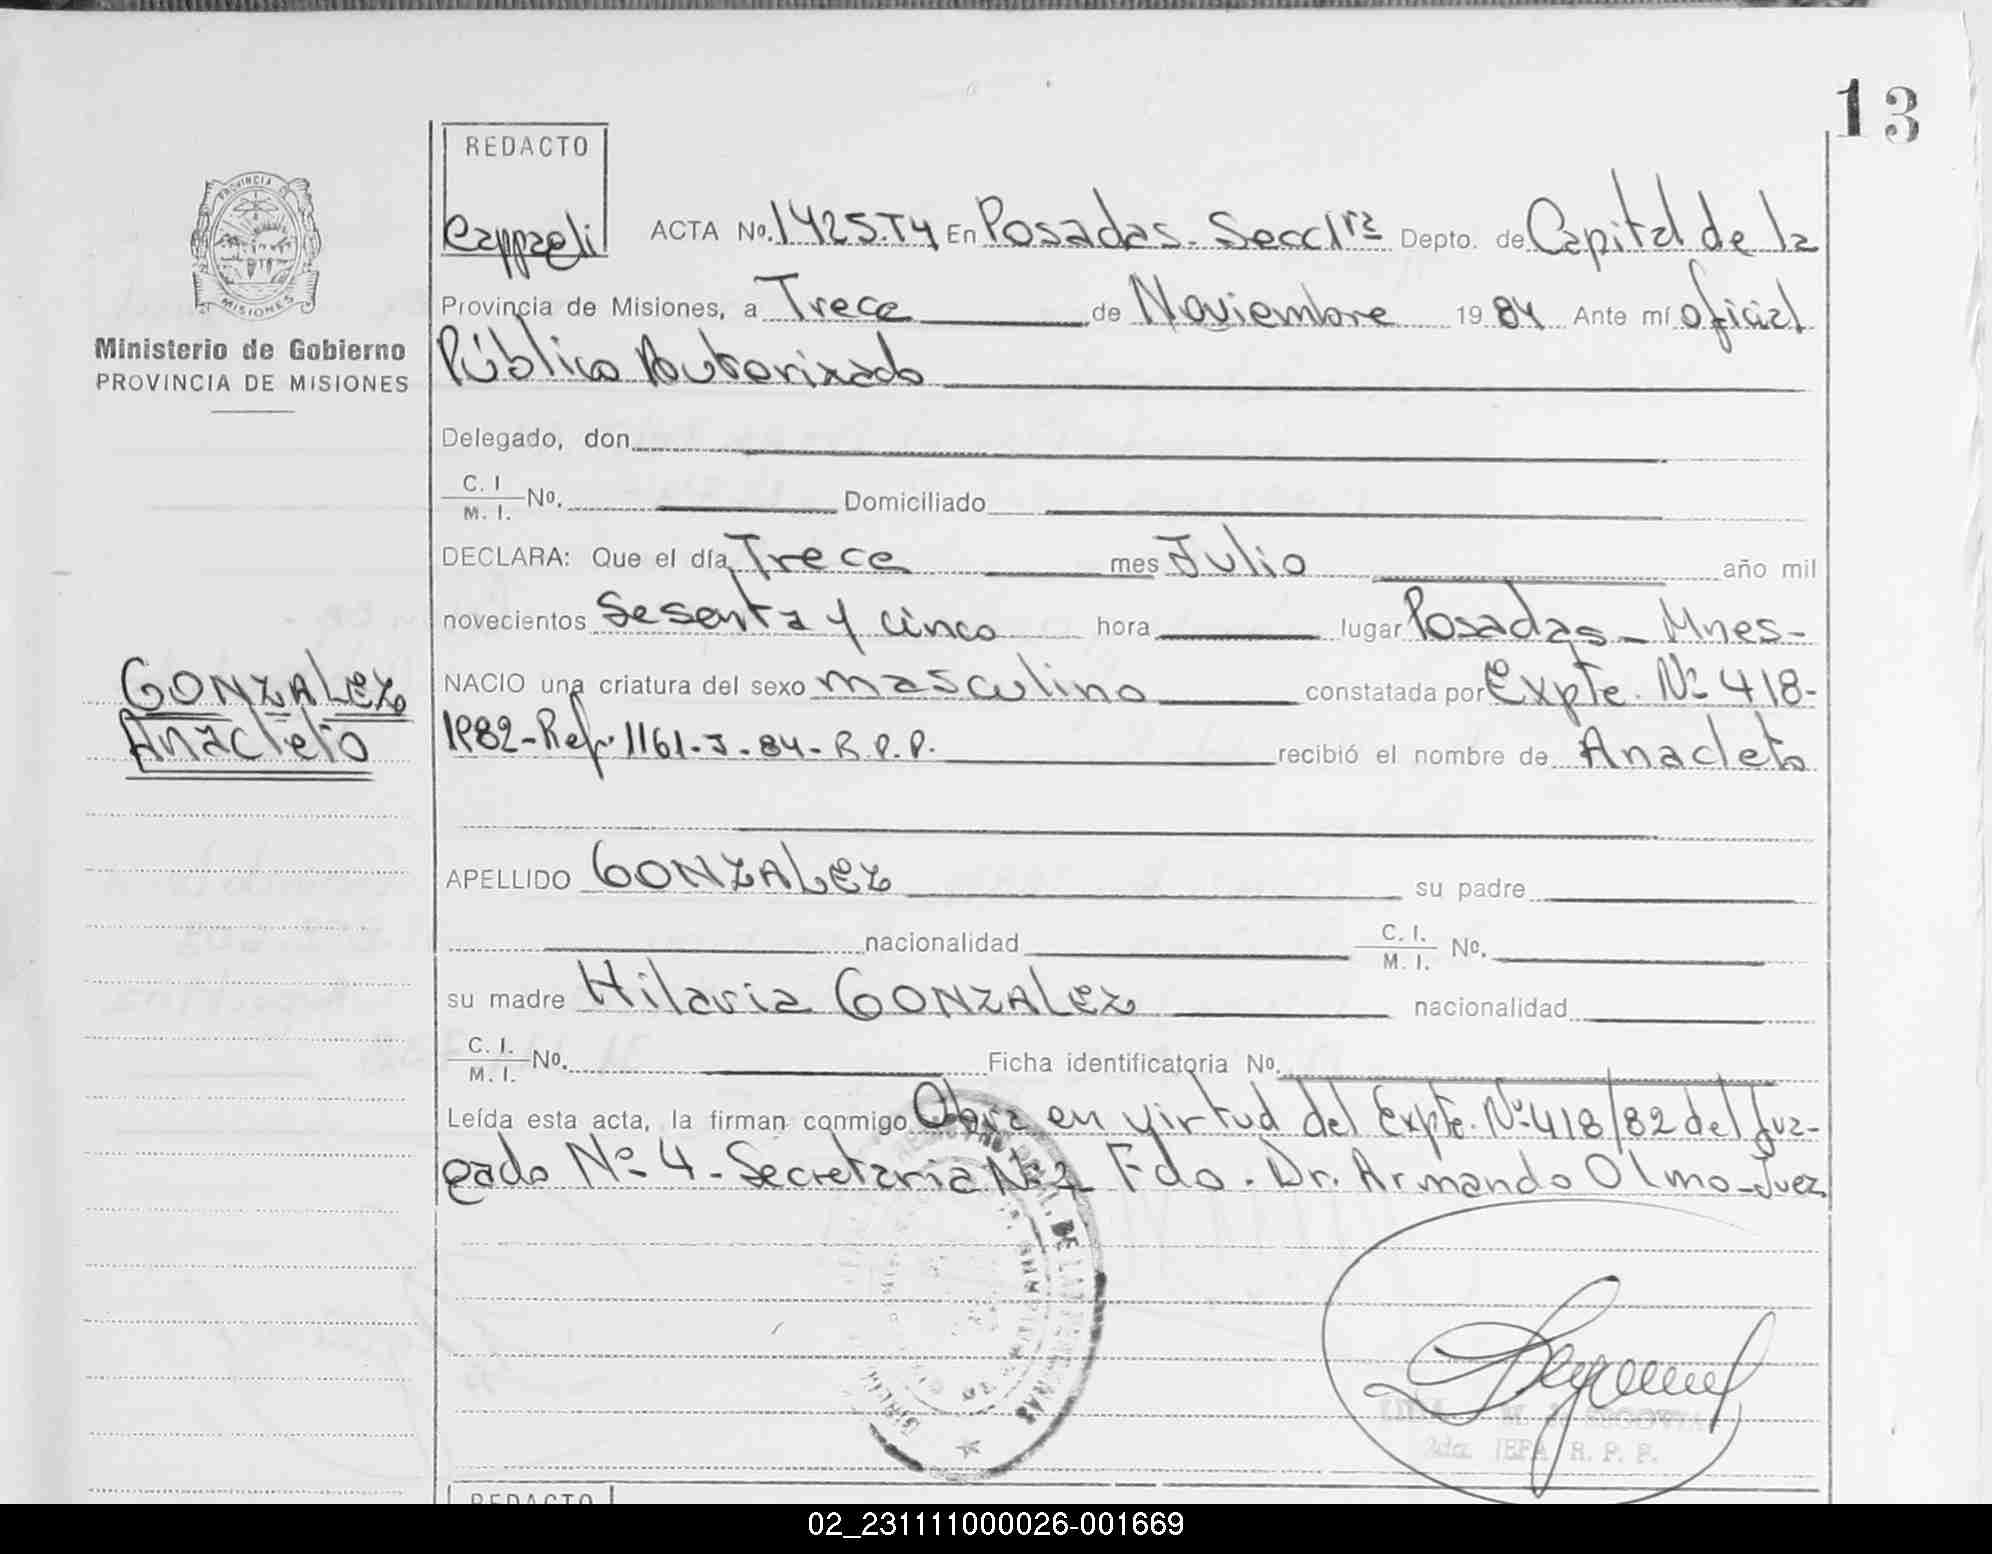 13
REDACTO
Cappaeli
PROVINCIA DE
MISIONES
Ministerio de Gobierno
PROVINCIA DE MISIONES
ACTA No. 1425.T4 En Posadas. Secc 1ra Depto. de Capital de la
Provincia de Misiones, a Trece de Noviembre 1984 Ante mí oficial
Público Autorizado
Delegado, don
C. I
M. I. No. Domiciliado
DECLARA: Que el día Trece mes Julio año mil
novecientos Sesenta y cinco hora lugar Posadas - Mnes-
GONZALEZ
Anacleto
NACIO una criatura del sexo masculino constatada por Expte. Nº 418-
1982-Ref. 1161-J-84-R.P.P. recibió el nombre de Anacleto
APELLIDO GONZALEZ su padre
nacionalidad C. I.
M. I. No.
su madre Hilaria GONZALEZ nacionalidad
C. I.
M. I. No. Ficha identificatoria No.
Leída esta acta, la firman conmigo Obra en virtud del Expte. Nº 418/82 del Juz-
gado Nº 4 - Secretaria Nº 2 Fdo. Dr. Armando Olmo-Juez
DE LAS PERSONAS
SEGOVIA
2da. JEFA R. P. P.
REDACTO
02_231111000026-001669